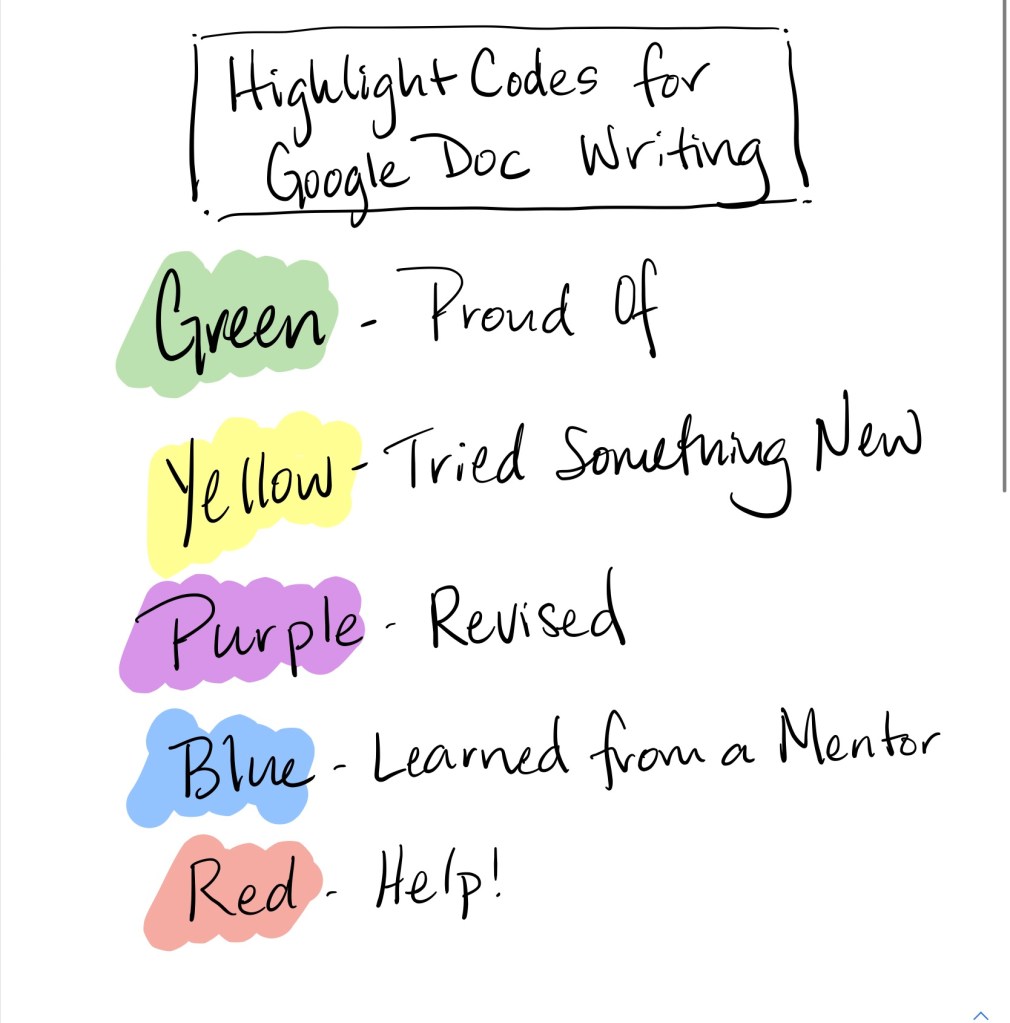 Highlight Codes for
Google Doc Writing
Green - Proud Of
Yellow - Tried Something New
Purple - Revised
Blue - Learned from a Mentor
Red - Help!